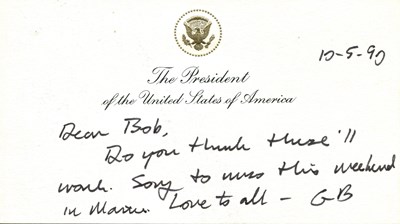 10-5-90
The President
of the United States of America
Dear Bob,
Do you think these'll
work. Sorry to miss this weekend
in Maine. Love to all - GB